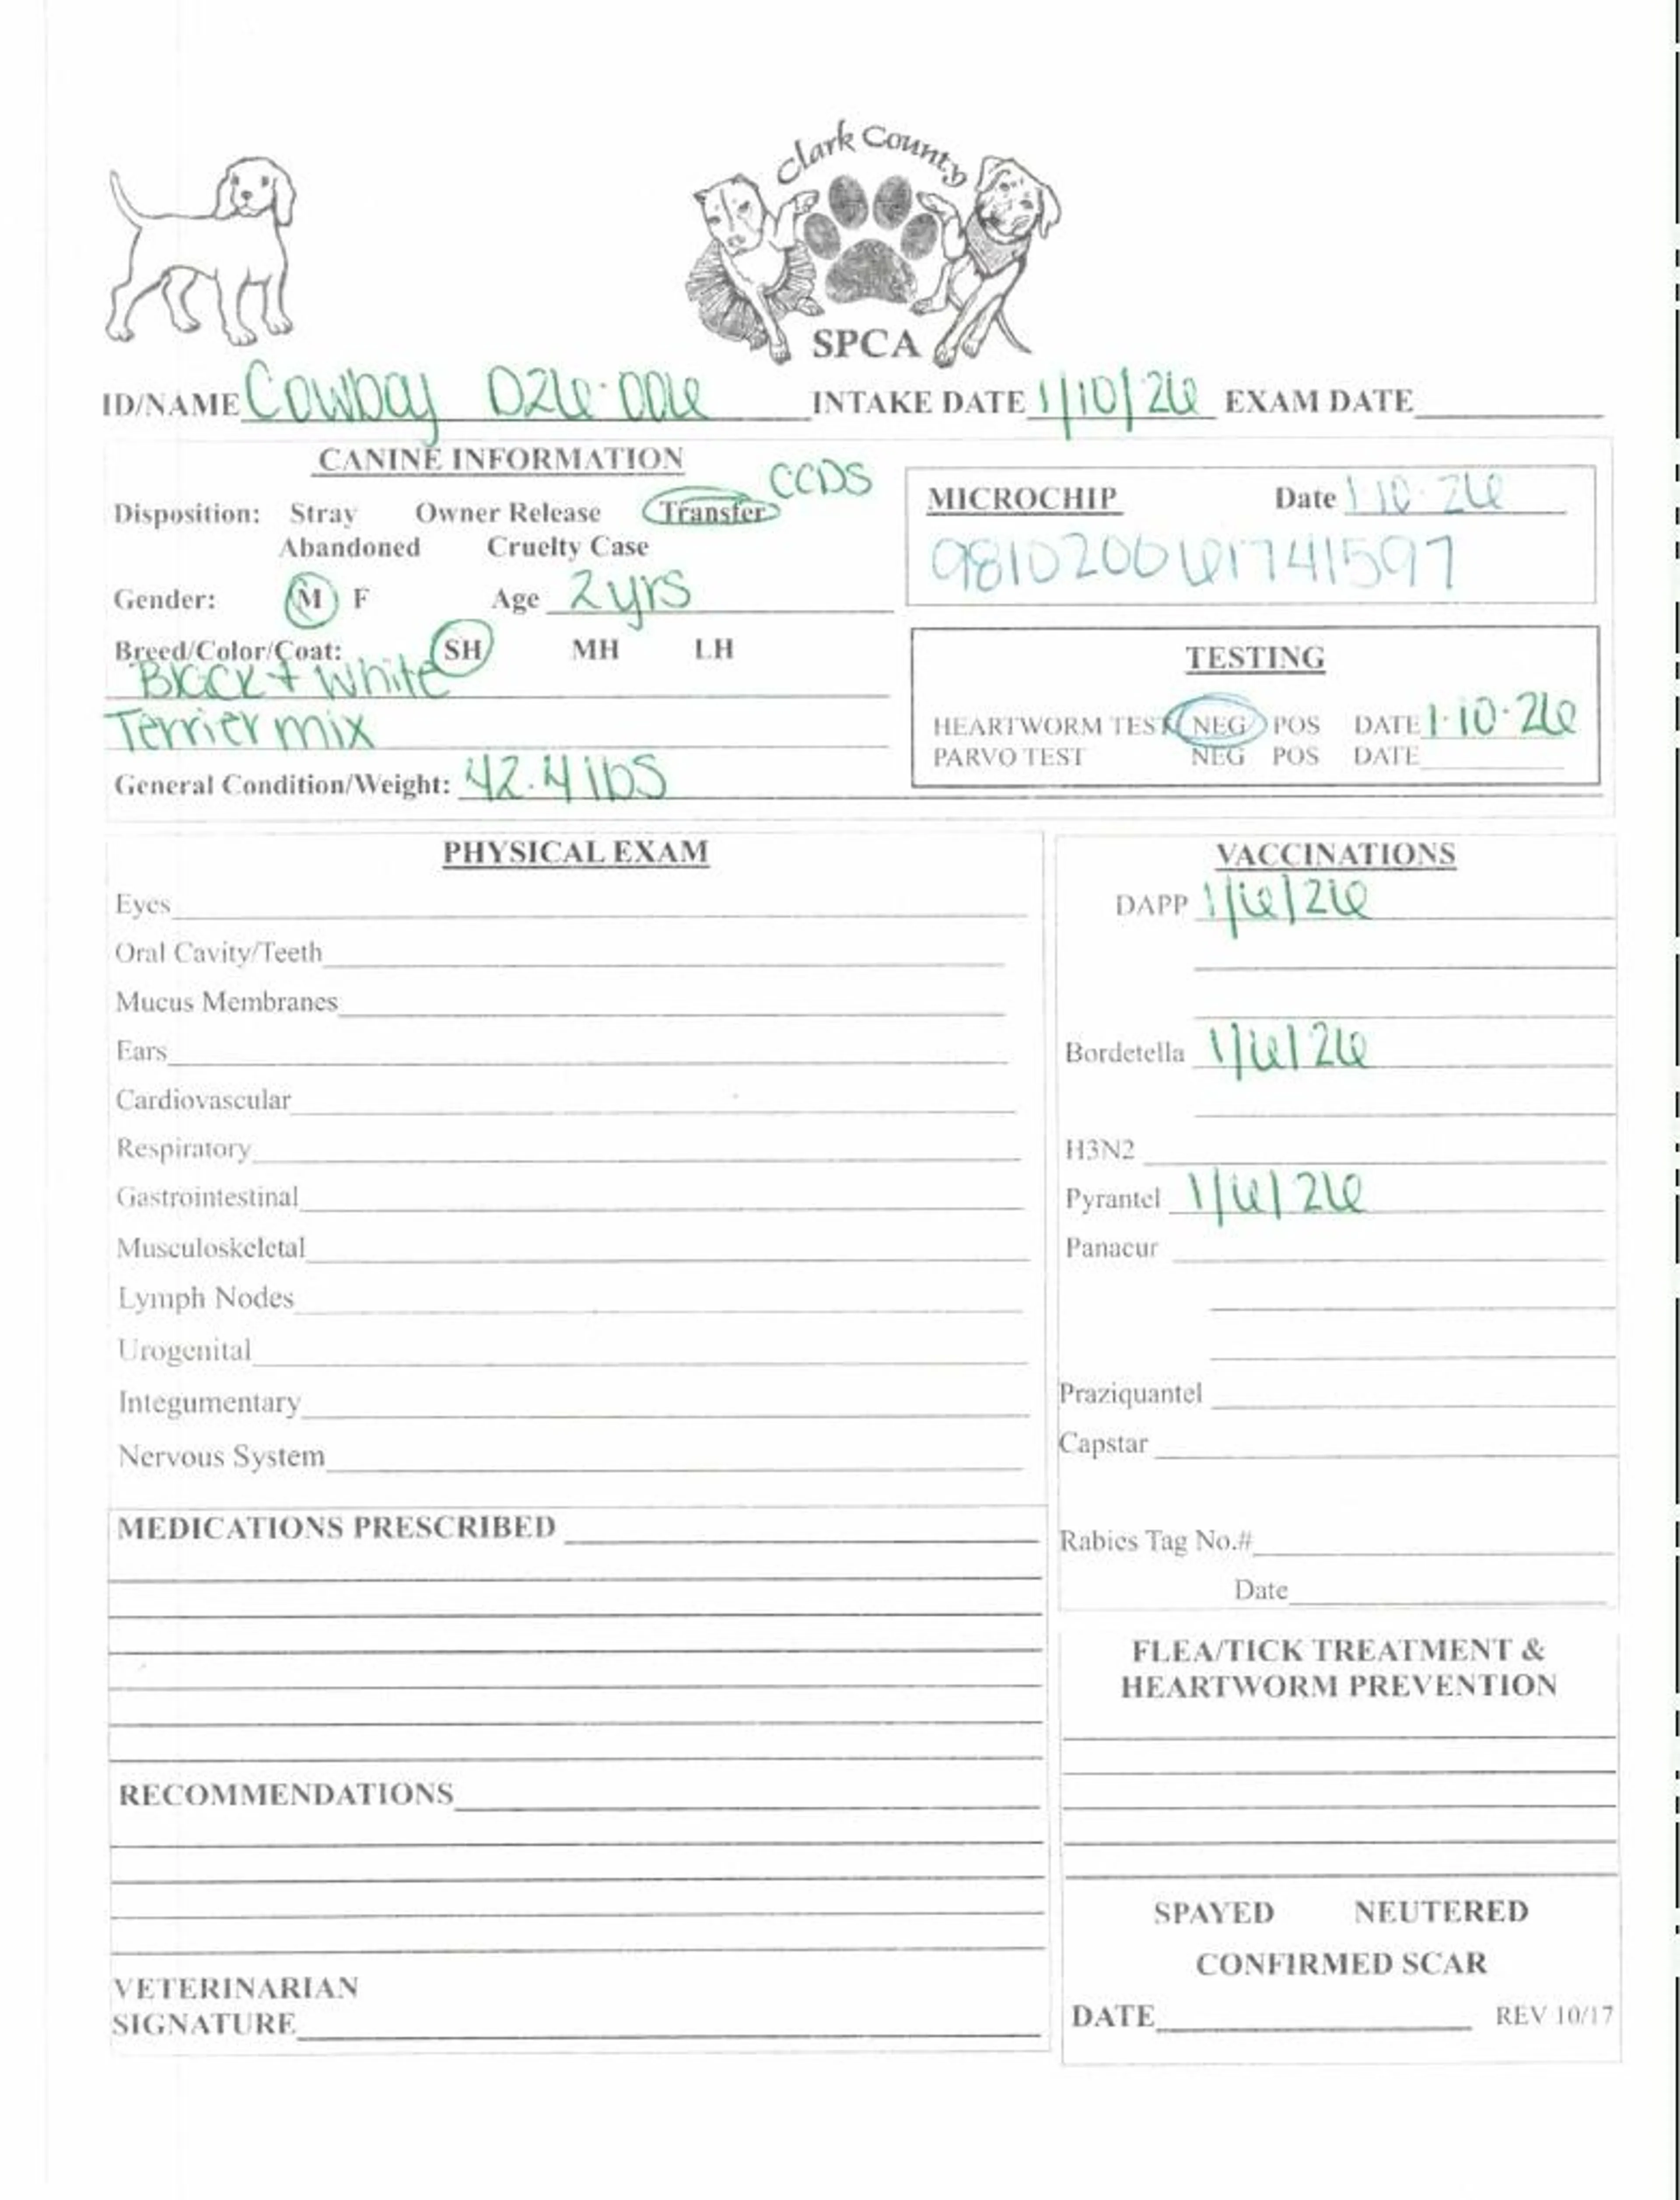 Clark County
SPCA
ID/NAME Cowboy D26-006 INTAKE DATE 1/10/26 EXAM DATE
CANINE INFORMATION
CCDS
Disposition: Stray Owner Release Transfer
Abandoned Cruelty Case
Gender: M F Age 2yrs
Breed/Color/Coat: SH MH LH
Black + White
Terrier mix
General Condition/Weight: 42.4 lbs
MICROCHIP Date 1-10-26
981020061741597
TESTING
HEARTWORM TEST NEG POS DATE 1-10-26
PARVO TEST NEG POS DATE
PHYSICAL EXAM
Eyes
Oral Cavity/Teeth
Mucus Membranes
Ears
Cardiovascular
Respiratory
Gastrointestinal
Musculoskeletal
Lymph Nodes
Urogenital
Integumentary
Nervous System
MEDICATIONS PRESCRIBED
RECOMMENDATIONS
VETERINARIAN
SIGNATURE
VACCINATIONS
DAPP 1/6/26
Bordetella 1/6/26
H3N2
Pyrantel 1/6/26
Panacur
Praziquantel
Capstar
Rabies Tag No.#
Date
FLEA/TICK TREATMENT &
HEARTWORM PREVENTION
SPAYED NEUTERED
CONFIRMED SCAR
DATE REV 10/17